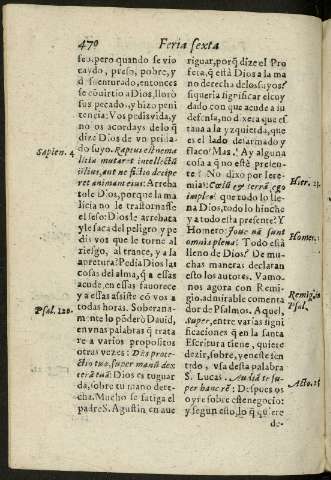 470
Feria sexta
feo, pero quando se vio
caydo, preso, pobre, y
desuenturado, entonces
se cõuirtio a Dios, lloró
sus pecado, y hizo peni
tencia: Vos pedis vida, y
no os acordays de lo q̃
dize Dios de vn priua-
do suyo. Raptus est ne ma
litia mutaret intellectũ
illius, aut ne fictio decipe
ret animam eius: Arreba
tole Dios, porque la ma
licia no le trastornasse
el seso: Dios le arrebata
y le saca del peligro, y pe
dis vos que le torne al
riesgo, al trance, y a la
apretura? Pedia Dios las
cosas del alma, q̃ a essas
acude, en essas fauorece
y a essas assiste cõ vos a
todas horas. Soberana-
mente lo põderò Dauid,
en vnas palabras q̃ trata
re a varios propositos
otras vezes: Dñs prote-
ctio tua, super manũ dex
terã tuã: Dios es tu guar
da, sobre tu mano dere-
cha. Mucho se fatiga el
padre S. Agustin en aue
riguar, porq̃ dize el Pro
feta, q̃ està Dios a la ma
no derecha de los suyos?
si queria significar el cuy
dado con que acude a su
defensa, no dexera que es
taua a la yzquierda, que
es el lado desarmado y
flaco? Mas: Ay alguna
cosa a q̃ no estè presen-
te? No dixo por Iere-
mia: Cœlũ & terrã ego
impleo: que todo lo lle-
na Dios, todo lo hinche
y a todo esta presente? Y
Homero: Joue nã sunt
omnia plena: Todo està
lleno de Dios? De mu-
chas maneras declaran
esto los autores. Vamo-
nos agora con Remi-
gio, admirable comenta
dor de Psalmos. Aquel,
super, entre varias signi
ficaciones q̃ en la santa
Escritura tiene, quiere
dezir, sobre, y en este sen
tido, vsa desta palabra
S. Lucas. Audiã te su-
per hanc rẽ: Despues os
oyre sobre este negocio:
y segun esto, lo q̃ quiere
de-
Sapien. 4
Psal. 120.
Hier. 23.
Homer.
Remig. in
Psal.
Acto. 25